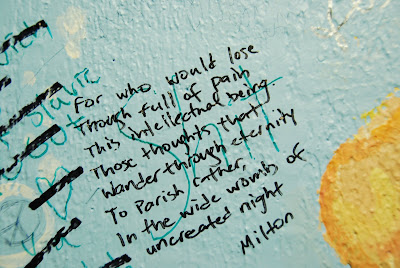 For who would lose
Though full of pain
This intellectual being
Those thoughts that
Wander through eternity
To Parish rather,
In the wide womb of
uncreated night
Milton